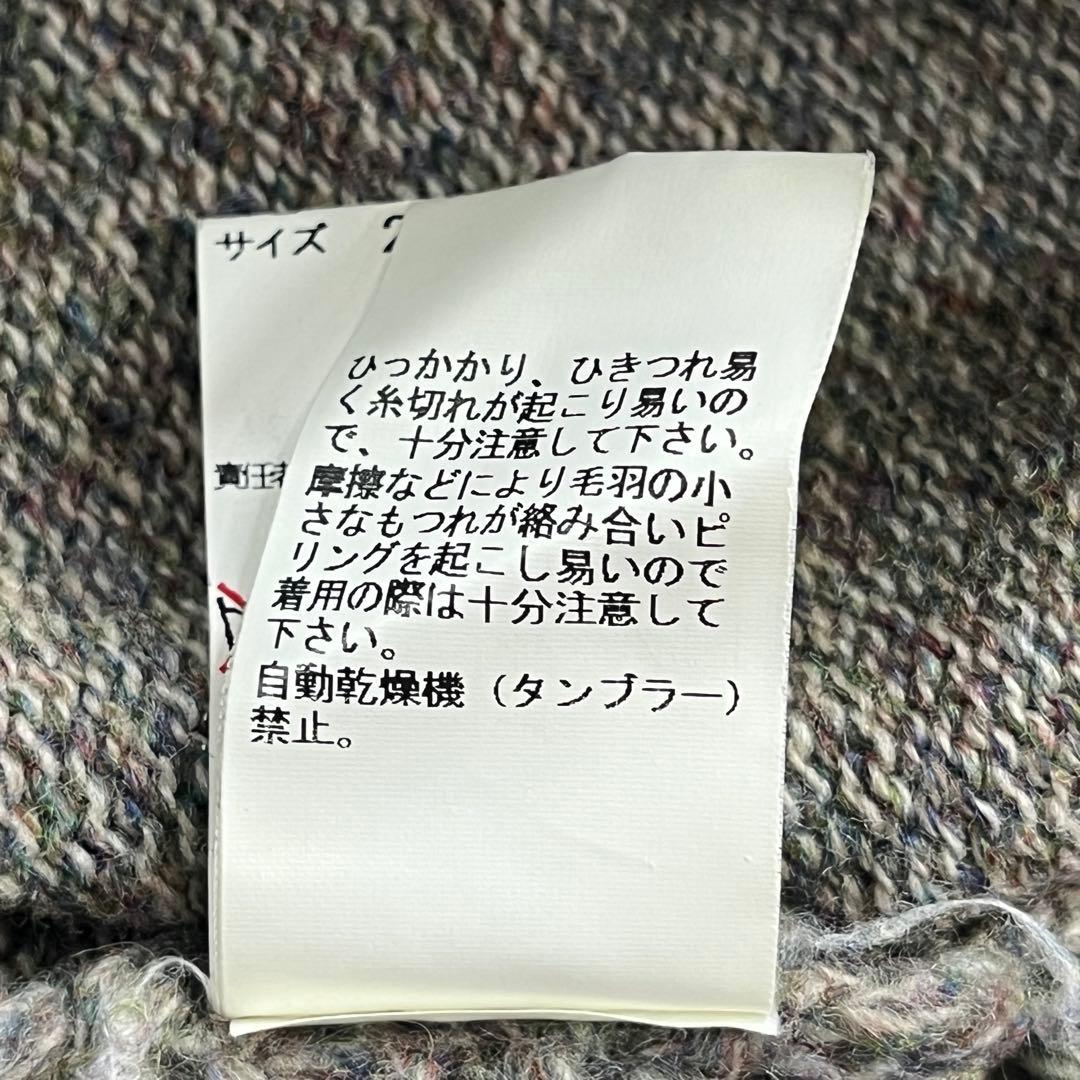 サイズ
ひっかかり、ひきつれ易
く糸切れが起こり易いの
で、十分注意して下さい。
責任
摩擦などにより毛羽の小
さなもつれが絡み合いピ
リングを起こし易いので
着用の際は十分注意して
下さい。
自動乾燥機（タンブラー）
禁止。